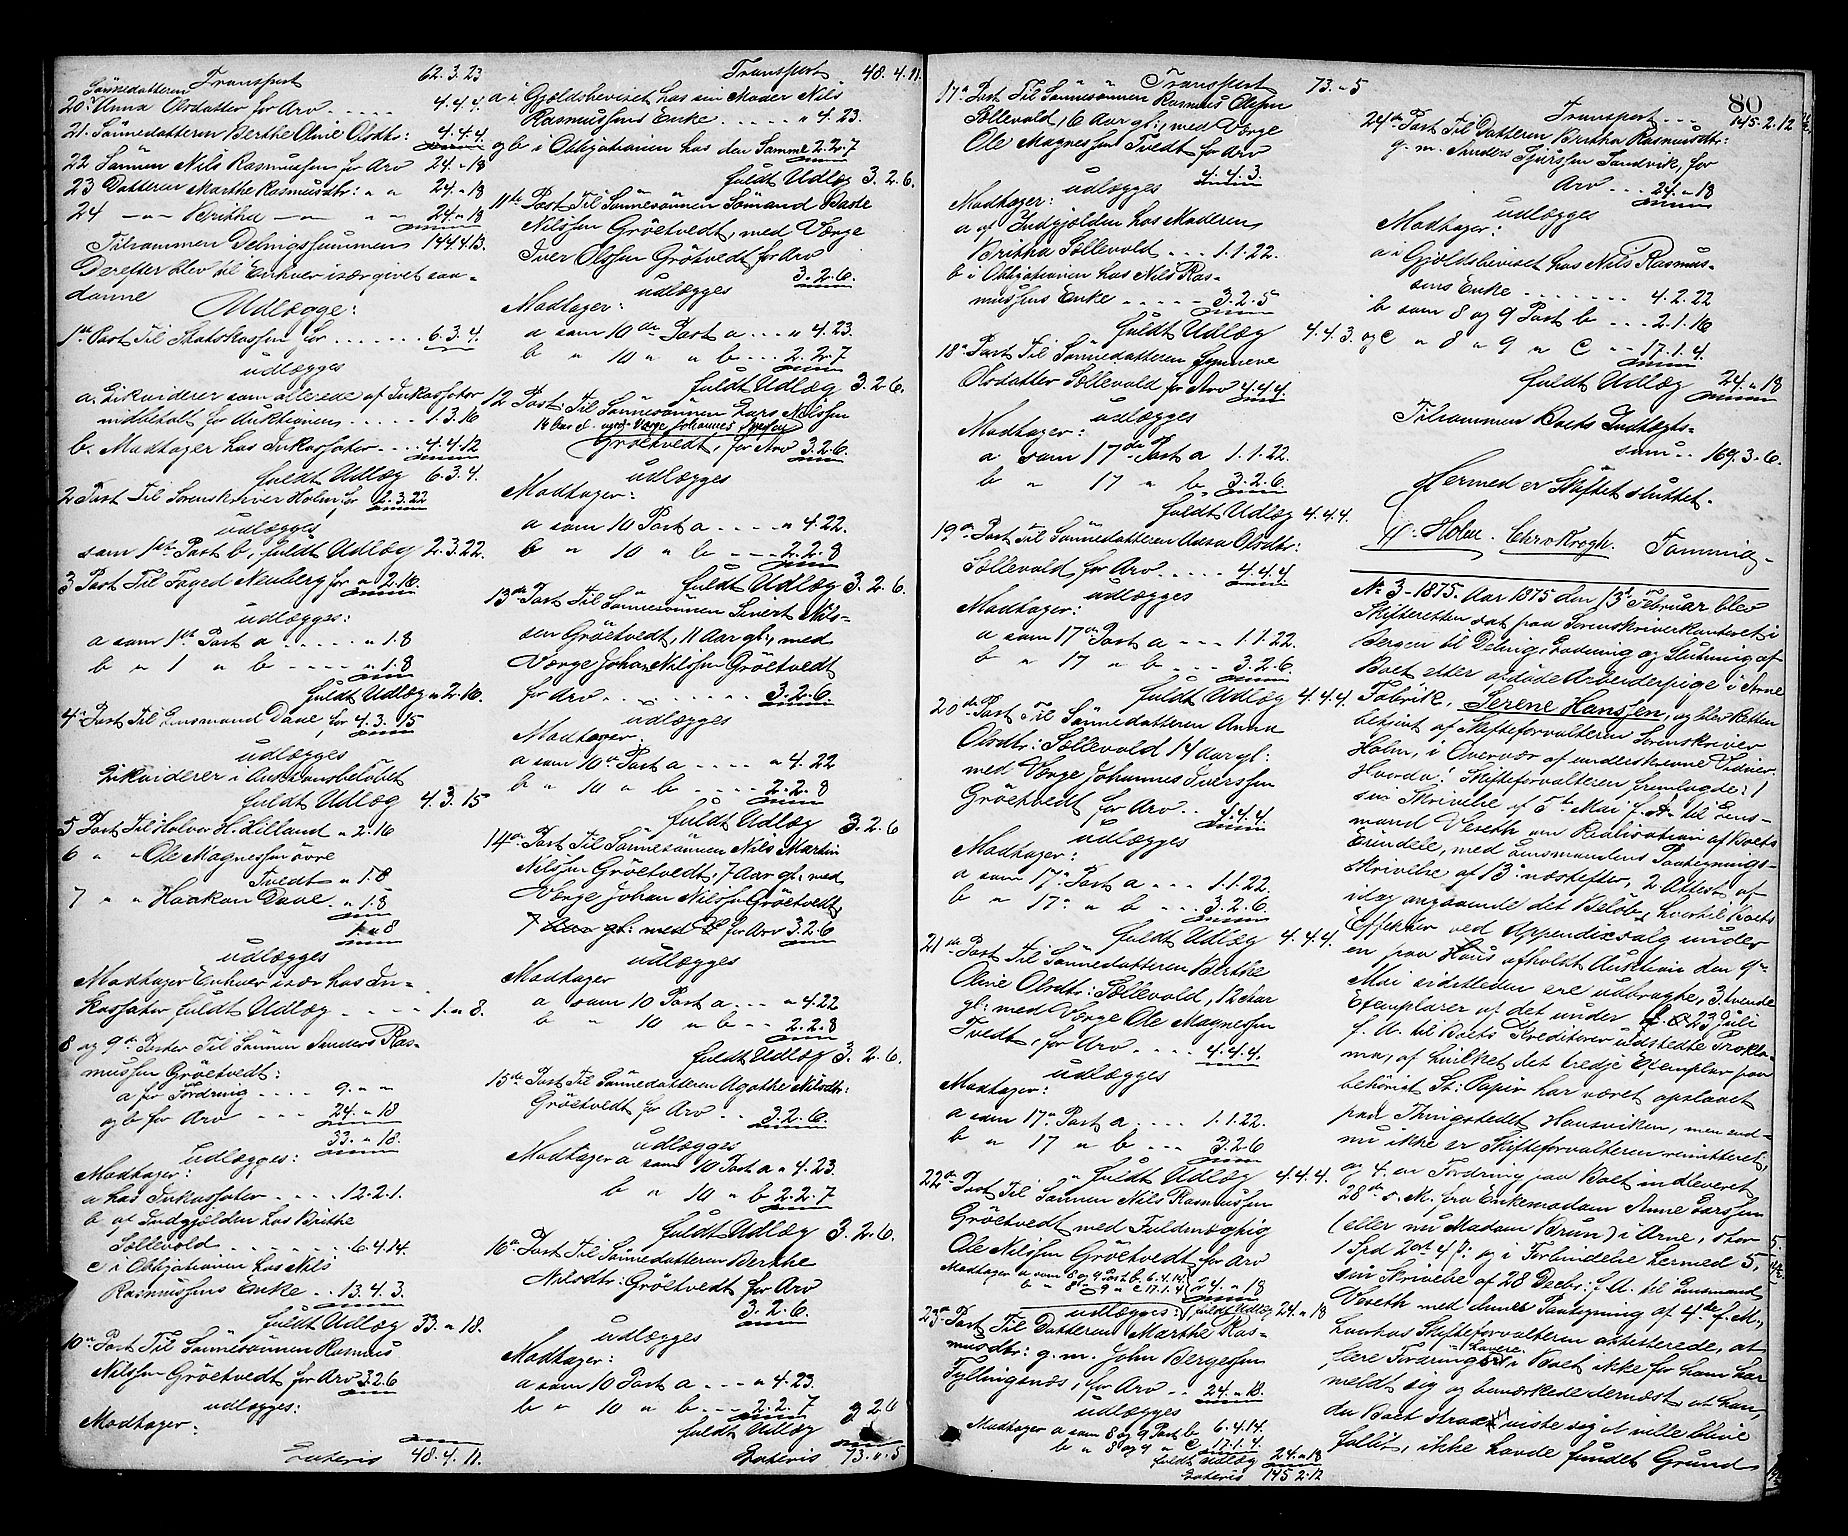 Transport 62.3.23
20 Sönnedatteren Anna Olsdatter for Arv 4.4.4.
21. Sönnedatteren Berthe Oline Olsdtr: 4.4.4
22 Sönnen Nils Rasmussen for Arv 24 " 18
23 Datteren Marthe Rasmusdtr: " " 24 " 18
24 — " — Britha — " — " " 24 " 18
Tilsammen Delingssummen 144.4.13.
Derefter blev til Enhver især givet saa-
danne
Udlægge:
1ste Post Til Statskassen for ..... 6.3.4.
udlægges
a. Likviderer som allerede af Inkassator
indbetalt for Auktionens ..... 1.3.16
b. Modtager hos Inkassator ... 4.4.12
fuldt Udlæg 6.3.4.
2 Post Til Sorenskriver Holm, for 2.3.22
udlægges
som 1ste Post b, fuldt Udlæg 2.3.22.
3 Post Til Foged Neuberg for " 2.16.
udlægges:
a som 1ste Post a ..... " 1.8
b " 1 " " b ..... " 1.8
fuldt Udlæg " 2.16.
4de Post Til Lensmand Dave, for 4.3.15
udlægges
Likviderer i Auktionsbeløbet
fuldt Udlæg 4.3.15
5 Post Til Halvor H. Lilland " 2.16
6 " " Ole Magnessen övre
Tvedt " 1.8
7 " " Haakon Dave " 1.8
1 " 8
udlægges
Modtager Enhver især hos In-
kassator fuldt Udlæg .... 1 " 8.
8 og 9de Poster Til Sönnen Anders Ras-
mussen Gröetvedt:
a for Fordring .... 9 " "
og b for Arv ... 24 " 18
33. " 18.
udlægges:
Modtager:
a hos Inkassator .... 12.2.1.
b af Indgjælden hos Brithe
Söllevold ..... 6.4.14.
c i Obligationen hos Nils
Rasmussens Enke .. 13.4.3
fuldt Udlæg 33. " 18.
10de Post Til Sönnesönnen Rasmus
Nilssen Gröetvedt for Arv 3.2.6
udlægges:
Modtager:
Lateris 48.4.11.
Transport 48.4.11.
a i Gjældsbeviset hos sin Moder Nils
Rasmussens Enke ..... " 4.23.
og b i Obligationen hos den Samme 2.2.7
fuldt Udlæg 3.2.6.
11te Post Til Sönnesönnen Sömand Baste
Nilssen Gröetvedt, med Værge
Iver Olssen Grötvedt for Arv
3.2.6.
udlægges
Modtager:
a som 10de Post a .... " 4.23.
b " 10 " " b ... 2.2.7
fuldt Udlæg 3.2.6.
12 Post: Til Sönnesönnen Lars Nilssen
Gröetvedt, for Arv 3.2.6.
udlægges
Modtager:
a som 10 Post a .... " 4.22.
b " 10 " b --- 2.2.8
fuldt Udlæg 3.2.6.
13de Post Til Sönnesönnen Sivert Nils-
sen Gröetvedt, 11 Aar gl., med
Værge Johan Nilssen Gröetvedt
for Arv ........ 3.2.6.
udlægges
Modtager.
a som 10de Post a .... " 4.22
b " 10 " b .... 2.2.8
fuldt Udlæg 3.2.6
14de Post Til Sönnesönnen Nils Martin
Nilssen Gröetvedt, 7 Aar gl., med
Værge Johan Nilssen Gröetvedt,
7 Aar gl: med V for Arv 3.2.6
udlægges
Modtager
a som 10 Post a ... " 4.22
b " 10 " b .. 2.2.8
fuldt Udlæg 3.2.6.
15de Post Til Sönnedatteren Agathe Nilsdtr:
Gröetvedt for Arv .. 3.2.6.
udlægges
Modtager a som 10 Post a " 4.23.
b " 10 " b 2.2.7
fuldt Udlæg 3.2.6.
16de Post Til Sönnedatteren Berthe
Nilsdtr: Gröetvedt for Arv
3.2.6.
udlægges
Modtager:
a som 10 Post a .... " 4.23.
b " 10 " b... 2.2.7 3 2 6
fuldt Udlæg
Lateris 73. " .5
Transport 73. " 5
17de Post Til Sönnesönnen Rasmus Olsen
Söllevold, 16 Aar gl., med Værge
Ole Magnessen Tvedt for Arv
4.4.3.
udlægges
Modtager:
a af Indgjælden hos Moderen
Britha Söllevold ... 1.1.22.
b i Obligationen hos Nils Ras-
mussens Enke ..... 3.2.5
fuldt Udlæg 4.4.3.
18de Post Til Sönnedatteren
Olsdatter Söllevold for Arv 4.4.4.
udlægges
Modtager:
a som 17de Post a 1.1.22.
b " 17 " b 3.2.6.
fuldt Udlæg 4.4.4.
19de Post Til Sönnedatteren Olsdtr:
Söllevold, for Arv ..... 4.4.4.
udlægges
Modtager:
a som 17de Post a ... 1.1.22.
b " 17 " b ... 3.2.6.
fuldt Udlæg 4.4.4.
20de Post Til Sönnedatteren Anna
Olsdtr: Söllevold 14 Aar gl:
med Værge Johannes Iverssen
Gröetvedt, for Arv .. 4.4.4.
udlægges
Modtager:
a som 17de Post a ... 1.1.22.
b " 17 " b ... 3.2.6.
fuldt Udlæg 4.4.4.
21de Post Til Sönnedatteren Berthe
Oline Olsdtr: Söllevold, 12 Aar
gl: med Værge Ole Magnessen
Tvedt, for Arv .... 4.4.4.
udlægges
Modtager:
a som 17de Post a .... 1.1.22.
b " 17 " b ... 3.2.6
fuldt Udlæg 4.4.4.
22de Post Til Sönnen Nils Rasmussen
Gröetvedt med Fuldmægtig
Ole Nilssen Gröetvedt for Arv
Modtager a som 8 og 9 Post b. 6.4.14. 24 " 18
b " 8 og 9 " c 17.1.4
udlægges: fuldt Udlæg 24 " 18
23de Post Til Datteren Marthe Ras-
musdtr: g. m. John Bergessen
Fyllingsnæs, for Arv .. 24. " 18.
udlægges
Modtager a som 8 og 9 Post b 6.4.14.
b " 8 og 9 " c 17.1.4.
fuldt Udlæg 24. " 18
Lateris 145.2.12
80
Transport ... 145.2.12
24de Post Til Datteren Britha Rasmusdtr:
g. m. Anders Sjurssen Sandvik, for
Arv ... 24 " 18
udlægges
Modtager:
a i Gjældsbeviset hos Nils Rasmus-
sens Enke ....... 4.2.22
b som 8 og 9 Post b ... 2.1.16
og c " 8 " 9 " c " 17.1.4.
fuldt Udlæg 24. " 18
Tilsammen Boets Indtægts-
sum .. 169.3.6.
Hermed er Skiftet sluttet.
Holm. Chr. Krogh.
No 3 - 1875. Aar 1875 den 13de Februar blev
Skifteretten sat paa Sorenskriverkontoret i
Bergen til Deling, Lodning og Slutning af
Boet efter afdöde Arbeiderpige i Arne
Fabrik, Serene Hanssen, og blev Retten
betjent af Skifteforvalteren Sorenskriver
Holm, i Overvær af underskrevne Vidner.
Hvorda: Skifteforvalteren fremlagde: 1
sin Skrivelse af 5te Mai f. A. til Lens-
mand Veseth om Realisation af Boets
Eiendele, med Lensmandens Paategnings-
skrivelse af 13 næstefter, 2 Attest af
idag angaaende det Belöb, hvortil Boets
Effekter ved Appendixsalg under
en paa Haus afholdt Auktion den 9de
Mai sidstleden ere udbragte, 3, tvende
Exemplarer af det under 23 Juli
f. A. til Boets Kreditorer udstedte Prokla-
ma, af hvilket det tredje Exemplar paa
behörigt St: Papir har været opslaaet
paa Thingstedet Hausviken, men end-
nu ikke er Skifteforvalteren remitteret,
og 4. en Fordring paa Boet indleveret
28de s. M. fra Enkemadam Anne Larssen
(eller nu Madam Brun) i Arne, stor
1 Spd 2 ort 4 ß: og i Forbindelse hermed 5,
sin Skrivelse af 28 Decbr: f. A. til Lensmand
Veseth med dennes Paategning af 4de f. M.,
hvorhos Skifteforvalteren attesterede, at
flere Fordringshavere i Boet ikke for ham har
meldt sig og bemærkede dernæst at han,
da Boet strax viste sig at ville blive
fallit, ikke havde fundet Grund